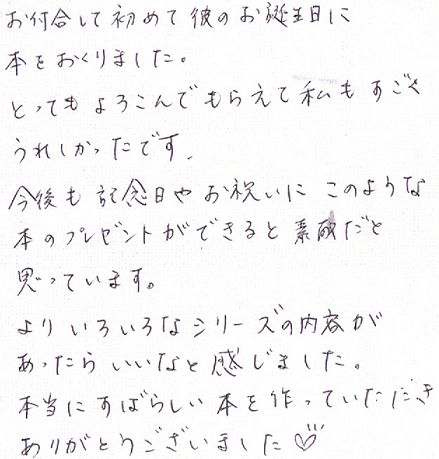 お付合して初めて彼のお誕生日に
本をおくりました。
とってもよろこんでもらえて私もすごく
うれしかったです。
今後も記念日やお祝いにこのような
本のプレゼントができると素敵だと
思っています。
よりいろいろなシリーズの内容が
あったらいいなと感じました。
本当にすばらしい本を作っていただき
ありがとうございました♡